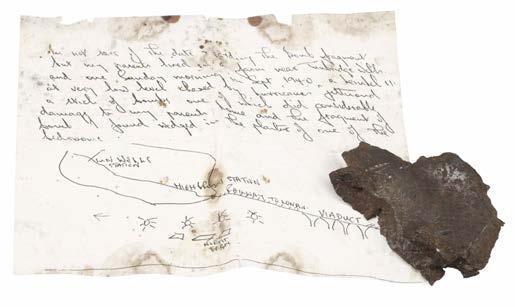 I'm not sure of the date during the bomb fragment
but my parents lived on a farm near Tunbridge Wells
and one Sunday morning in Sept 1940 a Heinkel 111
at very low level chased by a hurricane jettisoned
a stick of bombs one of which did considerable
damage to my parents home and this fragment of
bomb I found wedged in the plaster of one of the
bedrooms
TUN WELLS
STATION
HIGH STATION
RAILWAY TO LONDON
VIADUCT
FARM